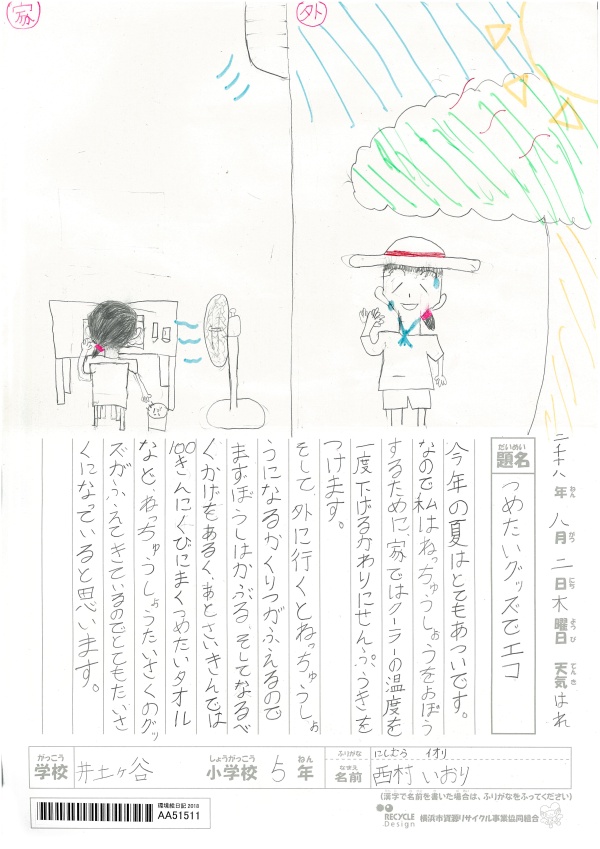 家
外
二千十八年 八月 二日 木曜日 天気 はれ
ねん がつ にち ようび てんき
だいめい
題名
つめたいグッズでエコ
今年の夏はとてもあついです。
なので私はねっちゅうしょうをよぼう
するために、家ではクーラーの温度を
一度下げるかわりにせんぷうきを
つけます。
そして、外に行くとねっちゅうしょ
うになるかくりつがふえるので
まずぼうしはかぶる、そしてなるべ
くかげをあるく、あとさいきんでは
100きんにくびにまくつめたいタオル
など、ねっちゅうしょうたいさくのグッ
ズがふえてきているのでとてもたいさ
くになっていると思います。
がっこう しょうがっこう ねん ふりがな にしむら イオリ
学校 井土ヶ谷 小学校 5年 なまえ 名前 西村 いおり
(漢字で名前を書いた場合は、ふりがなをふってください)
環境絵日記 2018
AA51511
RECYCLE Design 横浜市資源リサイクル事業協同組合